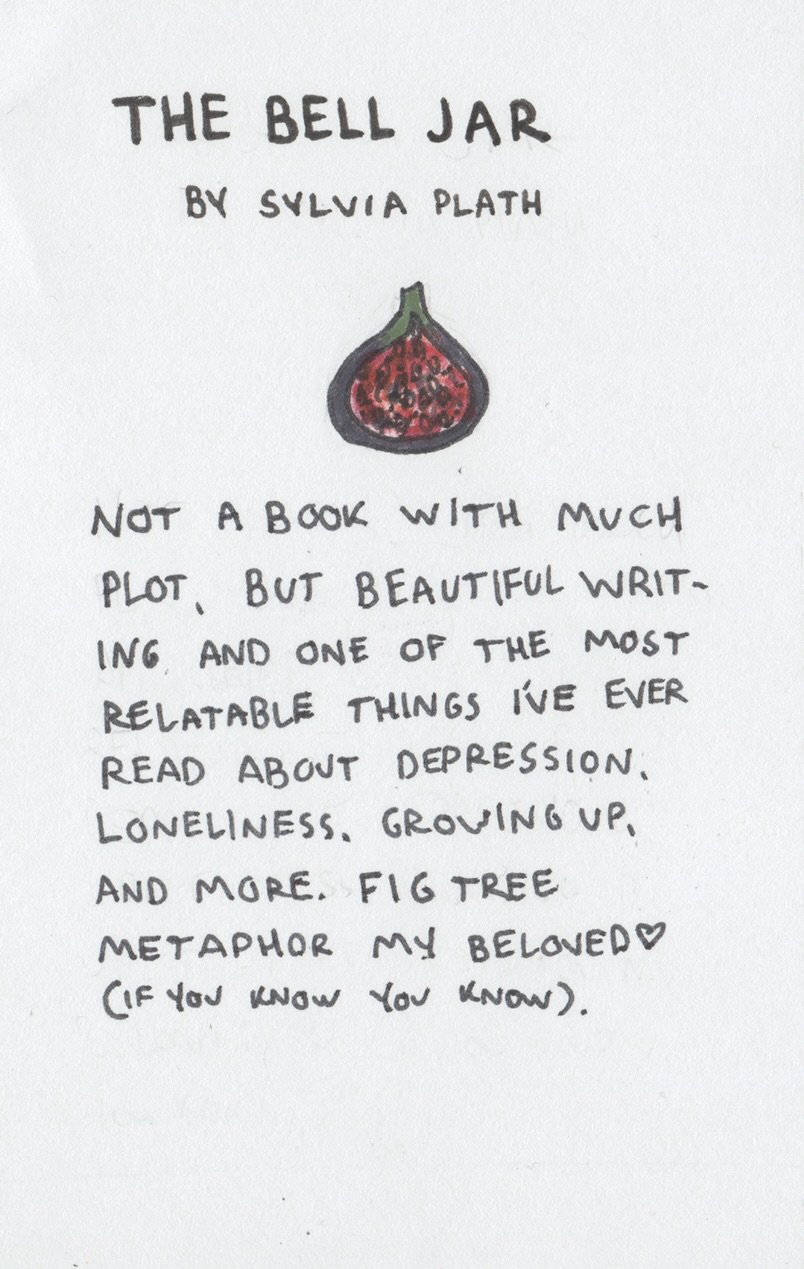 THE BELL JAR
BY SYLVIA PLATH
NOT A BOOK WITH MUCH
PLOT, BUT BEAUTIFUL WRIT-
ING AND ONE OF THE MOST
RELATABLE THINGS I'VE EVER
READ ABOUT DEPRESSION,
LONELINESS, GROWING UP,
AND MORE. FIG TREE
METAPHOR MY BELOVED♡
(IF YOU KNOW YOU KNOW).